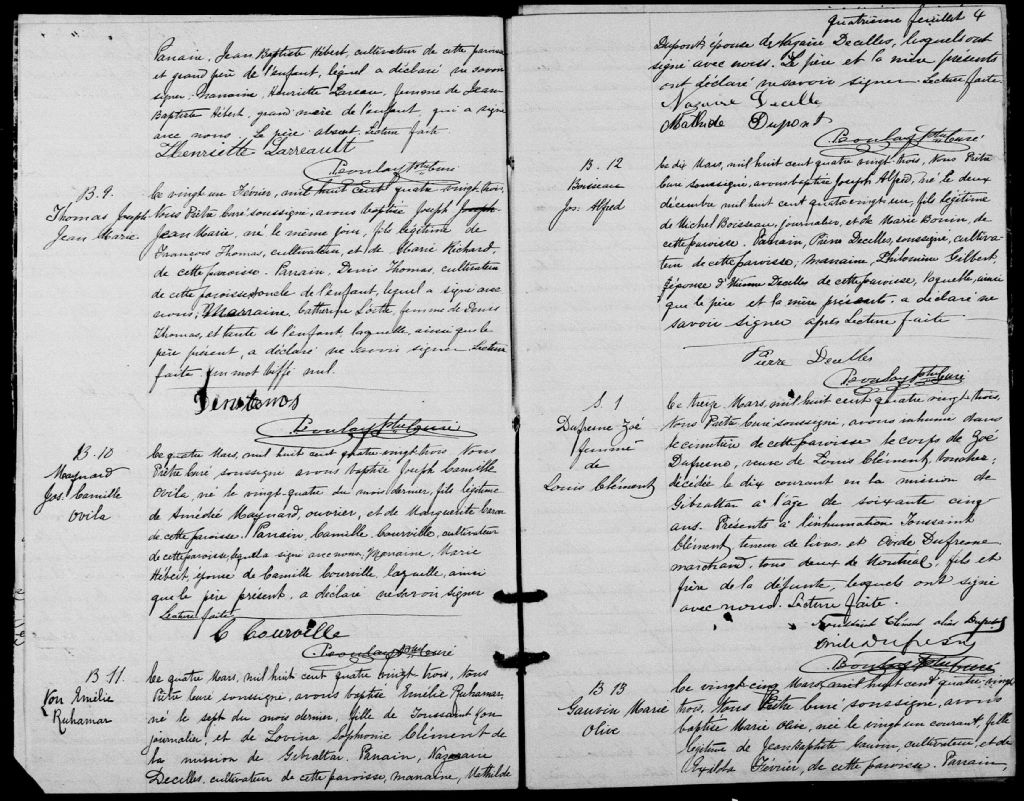 Parrain, Jean Baptiste Hébert, cultivateur de cette paroisse
et grand père de l'enfant, lequel a déclaré ne savoir
signer, marraine, Henriette Lareau, femme de Jean
Baptiste Hébert, grand mère de l'enfant qui a signé
avec nous. Le père absent. Lecture faite
Henriette Larreault
Boulay Ptre Curé
B. 9.
Thomas Joseph
Jean Marie
Le vingt un Février, mil huit cent quatre vingt trois,
Nous Prêtre Curé soussigné, avons baptisé Joseph Joseph
Jean Marie, né le même jour, fils légitime de
François Thomas, cultivateur, et de Marie Richard,
de cette paroisse. Parrain, Denis Thomas, cultivateur
de cette paroisse, oncle de l'enfant, lequel a signé avec
nous, Marraine, Catherine femme de Denis
Thomas, et tante de l'enfant laquelle, ainsi que le
père présent, a déclaré ne savoir signer Lecture
faite. Un mot biffé nul.
Boulay Ptre Curé
B. 10
Maynard
Jos. Camille
Ovila
Le quatre Mars, mil huit cent quatre vingt trois Nous
Prêtre Curé, soussigné avons baptisé Joseph Camille
Ovila, né le vingt-quatre du mois dernier, fils légitime
de Amédée Maynard, ouvrier, et de Marguerite
de cette paroisse. Parrain, Camille Courville, cultivateur
de cette paroisse, lequel a signé avec nous, Marraine, Marie
Hébert, épouse de Camille Courville, laquelle, ainsi
que le père présent, a déclaré ne savoir signer
Lecture faite
C Courville
Boulay Ptre Curé
B 11.
Yon Emélie
Ruhamar
Le quatre Mars, mil huit cent quatre vingt trois, Nous
Prêtre Curé soussigné, avons baptisé Emélie Ruhamar,
né le sept du mois dernier, fille de Toussaint Yon
journalier, et de Lovina Sophronie Clément de
la mission de Gibraltar. Parrain, Nazaire
Decelles, cultivateur de cette paroisse, marraine, Mathilde
Quatrième feuillet 4
Dupont épouse de Nazaire Decelles, lesquels ont
signé avec nous. Le père et la mère présents
ont déclaré ne savoir signer. Lecture faite
Nazaire Decelle
Mathilde Dupont
Boulay Ptre Curé
B. 12
Boisseau
Jos. Alfred
Le dix Mars, mil huit cent quatre vingt-trois, Nous Prêtre
Curé soussigné, avons baptisé Joseph Alfred, né le deux
décembre mil huit cent quatre vingt un, fils légitime
de Michel Boisseau, journalier, et de Marie Bonin, de
cette paroisse. Parrain, Pierre Decelles, soussigné, cultiva-
teur de cette paroisse, marraine, Philomène Gilbert,
épouse d'Etienne Decelles de cette paroisse, laquelle, ainsi
que le père et la mère présents, a déclaré ne
savoir signer après Lecture faite
Pierre Decelles
Boulay Ptre Curé
S. 1
Dufresne Zoé
femme
de
Louis Clément
Le treize Mars, mil huit cent quatre vingt trois,
Nous Prêtre Curé soussigné, avons inhumé dans
le cimetière de cette paroisse le corps de Zoé
Dufresne, veuve de Louis Clément, boucher,
décédée le dix courant en la mission de
Gibraltar à l'âge de soixante cinq
ans. Présents à l'inhumation Toussaint
Clément, teneur de livres, et Ovide Dufresne
marchand, tous deux de Montréal, fils et
frère de la défunte, lesquels ont signé
avec nous. Lecture faite.
Toussaint Clément alias
Ovide Dufresne
Boulay Ptre Curé
B 13
Gauvin Marie
Olive
Le vingt-cinq Mars, mil huit cent quatre-vingt
trois, Nous Prêtre Curé soussigné, avons
baptisé Marie Olive, née le vingt un courant, fille
légitime de Jean Baptiste Gauvin, cultivateur, et de
Exilda Février, de cette paroisse. Parrain,